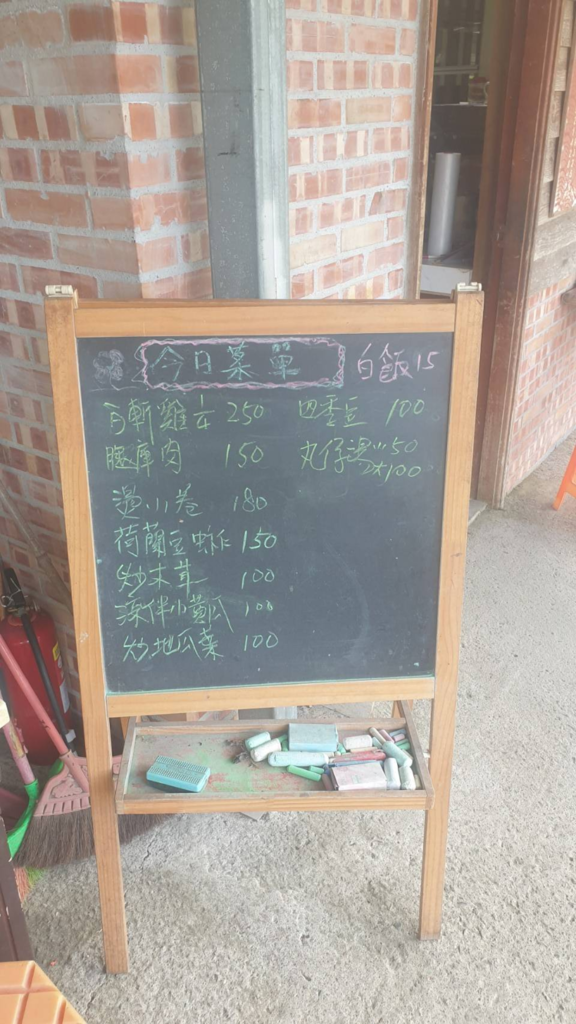 今日菜單
白飯15
白斬雞 1/4 250
腿庫肉 150
燙小卷 180
荷蘭豆虾仁 150
炒木茸 100
涼伴小黃瓜 100
炒地瓜葉 100
四季豆 100
丸仔湯 小50
大100